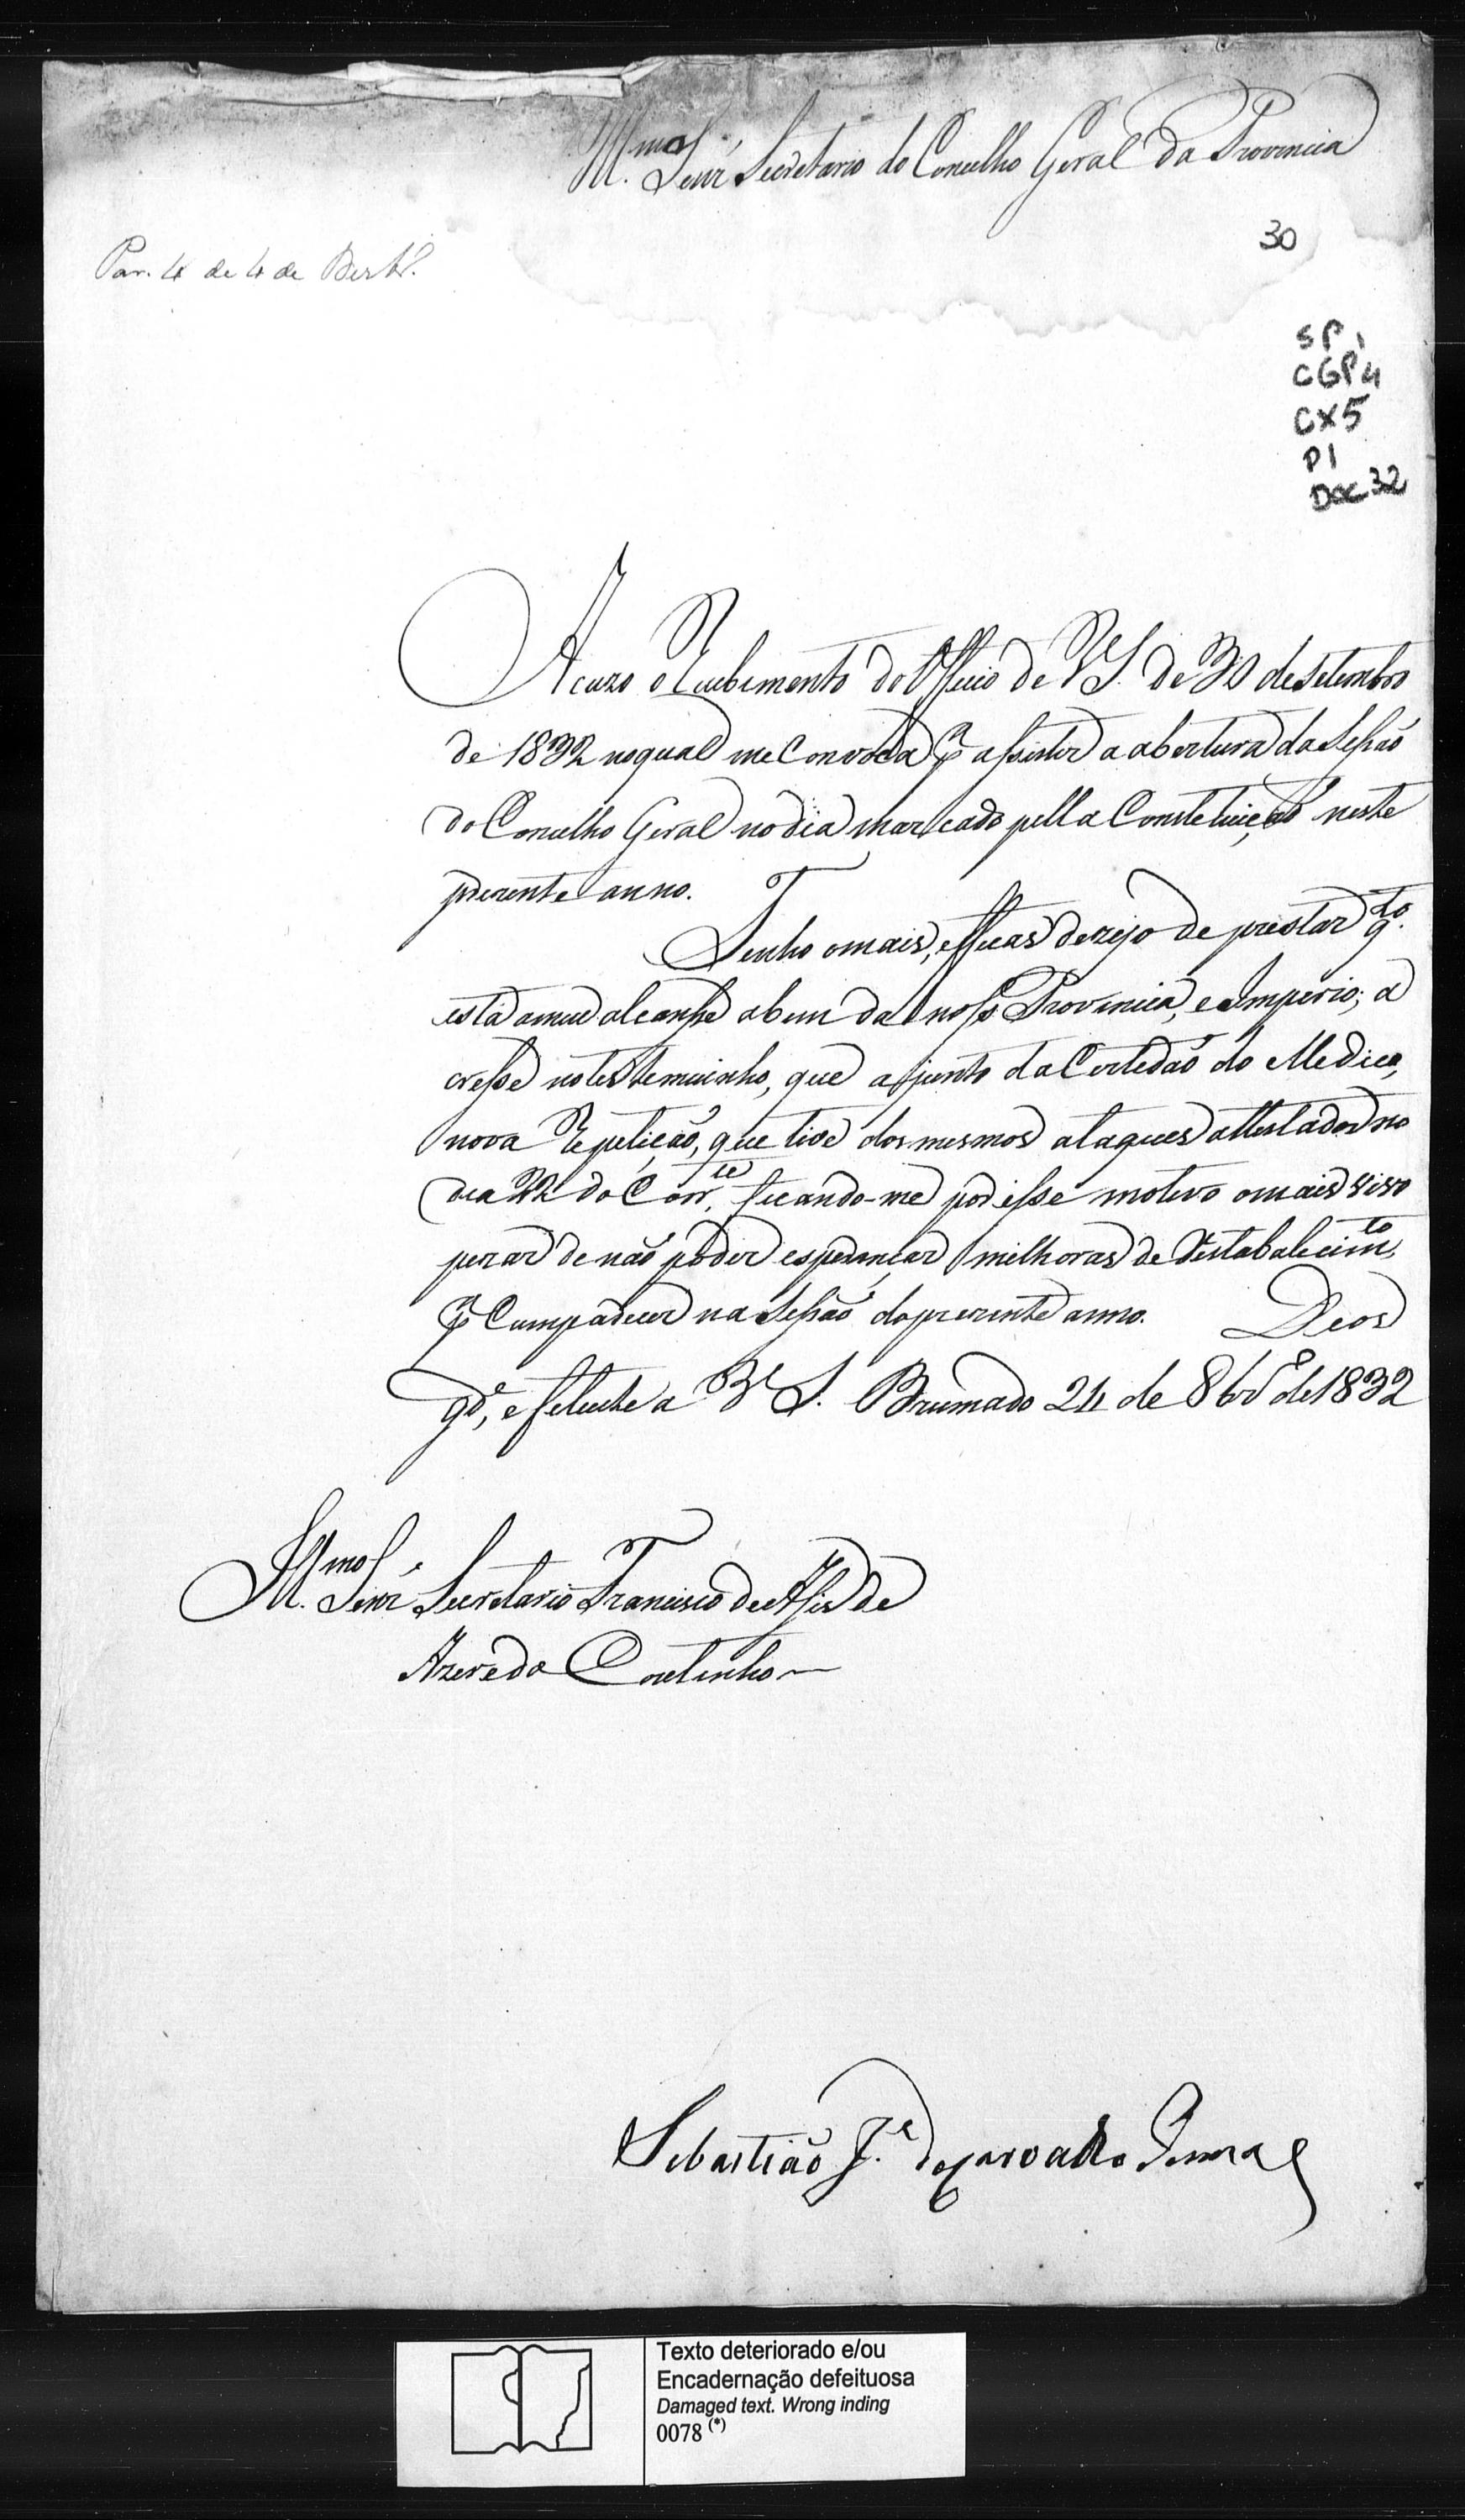 Illmo Senr Secretario do Concelho Geral da Provincia
30
Par. 4 de 4 de
SP
CGP 4
CX5
P1
DOC 32
Acuzo o Recebimento do Officio de VS. de 30 de Setembro
de 1832 no qual me Convoca pa assistir a abertura da Sessão
do Concelho Geral no dia marcado pella Constetuição neste
prezente anno.
Tenho o mais, efficas dezejo de prestar qto.
está a meu alcanse a bem da nossa Provincia, e Imperio; a
cresse no testemuinho, que ajunto da Certedão do Medico,
nova Repetição, que tive dos mesmos ataques attestados no
dia 22 do Corrte, ficando-me por esse motivo o mais vivo
pezar de não poder esperançar milhoras de Restabalecimto
pa Cumparecer na Sessão do prezente anno. Deos
gde, e felecite a VS. Brumado 24 de 8bro de 1832
Illmo Senr Secretario Francisco de Assis de
Azeredo Coutinho
Sebastião Je. de Carvalho Penna
Texto deteriorado e/ou
Encadernação defeituosa
Damaged text. Wrong inding
0078 (*)